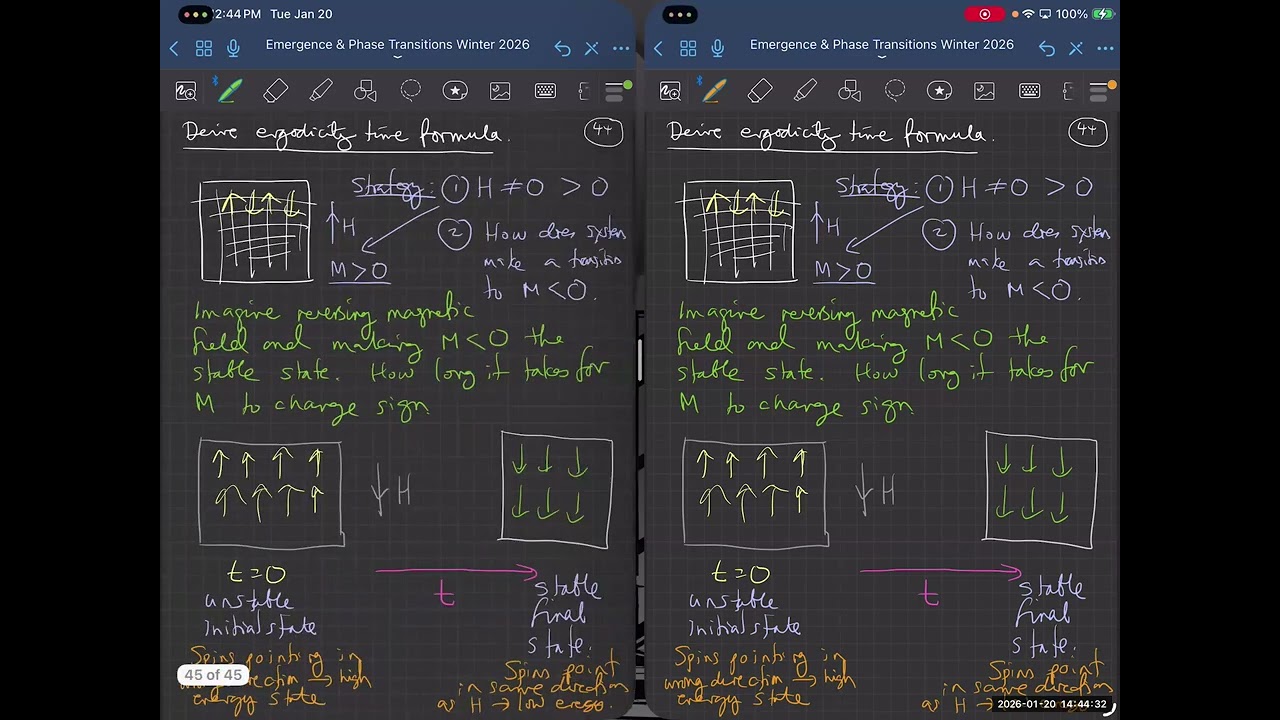 2:44 PM Tue Jan 20
100%
Emergence & Phase Transitions Winter 2026
Derive ergodicity time formula.
44
Strategy: ① H ≠ 0 > 0
↑ H
② How does system
make a transition
to M < 0.
M > 0
Imagine reversing magnetic
field and making M < 0 the
stable state. How long it takes for
M to change sign.
↓ H
t = 0
t
unstable
initial state
stable
final
state.
Spins pointing in
wrong direction → high
energy state
Spins point
in same direction
as H → low
45 of 45
Emergence & Phase Transitions Winter 2026
Derive ergodicity time formula.
44
Strategy: ① H ≠ 0 > 0
↑ H
② How does system
make a transition
to M < 0.
M > 0
Imagine reversing magnetic
field and making M < 0 the
stable state. How long it takes for
M to change sign.
↓ H
t = 0
t
unstable
initial state
stable
final
state.
Spins pointing in
wrong direction → high
energy state
Spins point
in same direction
as H
2026-01-20 14:44:32